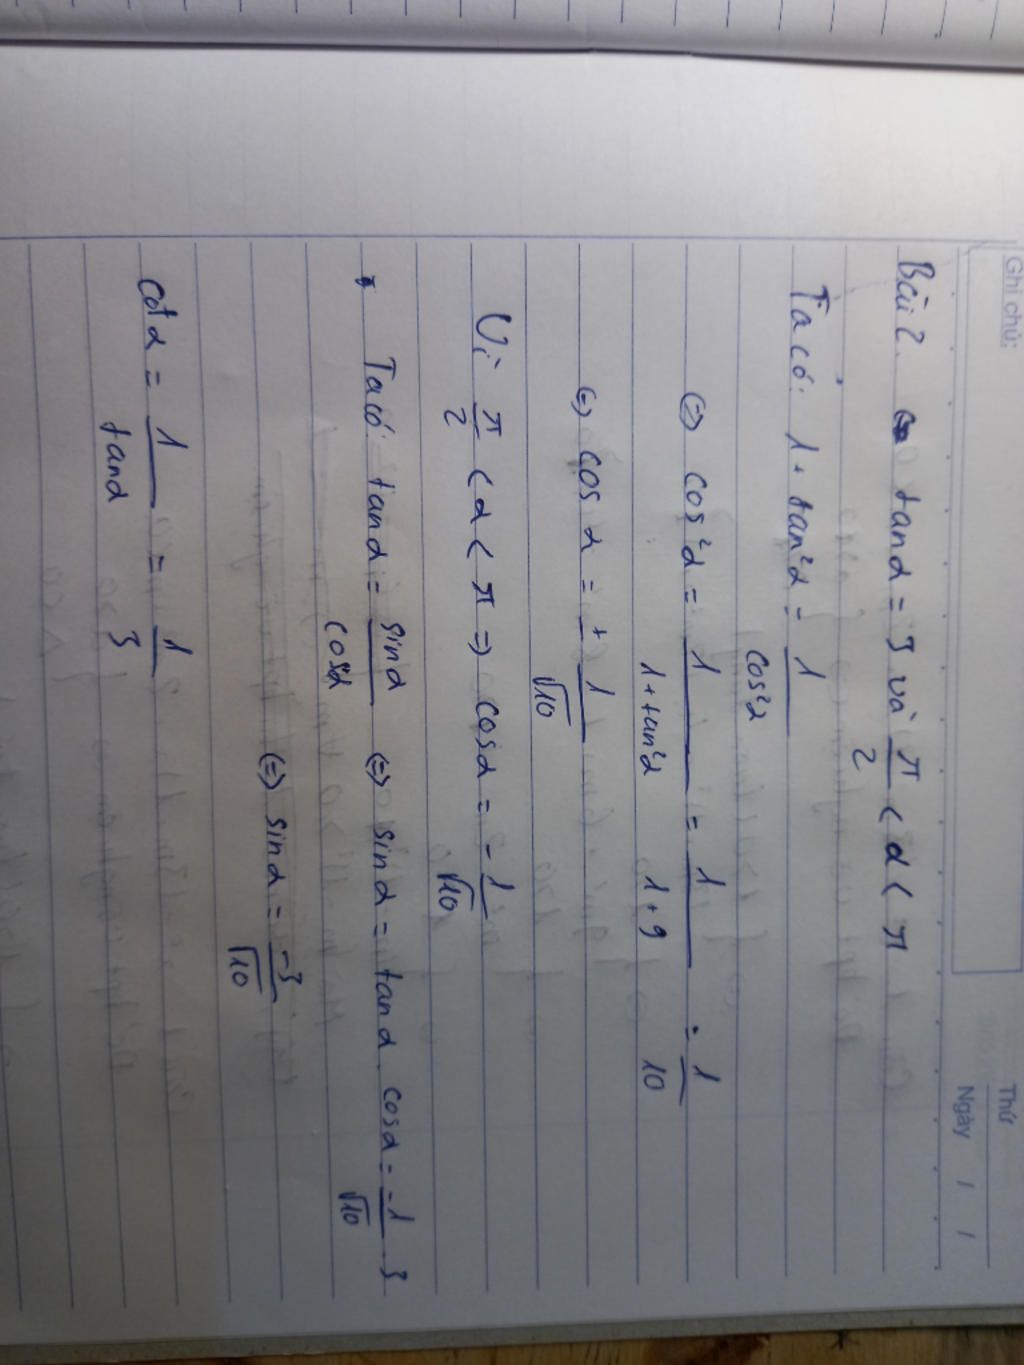 Ghi chú:
Thứ
Ngày / /
Bài 2. tanα = 3 và π/2 < α < π
Ta có: 1 + tan²α = 1/cos²α
(=) cos²α = 1/(1+tan²α) = 1/(1+9) = 1/10
(=) cos α = ± 1/√10
Vì π/2 < α < π => cosα = -1/√10
* Ta có: tanα = sinα/cosα (=) sinα = tanα . cosα = -1/√10 . 3
(=) sinα = -3/√10
cotα = 1/tanα = 1/3